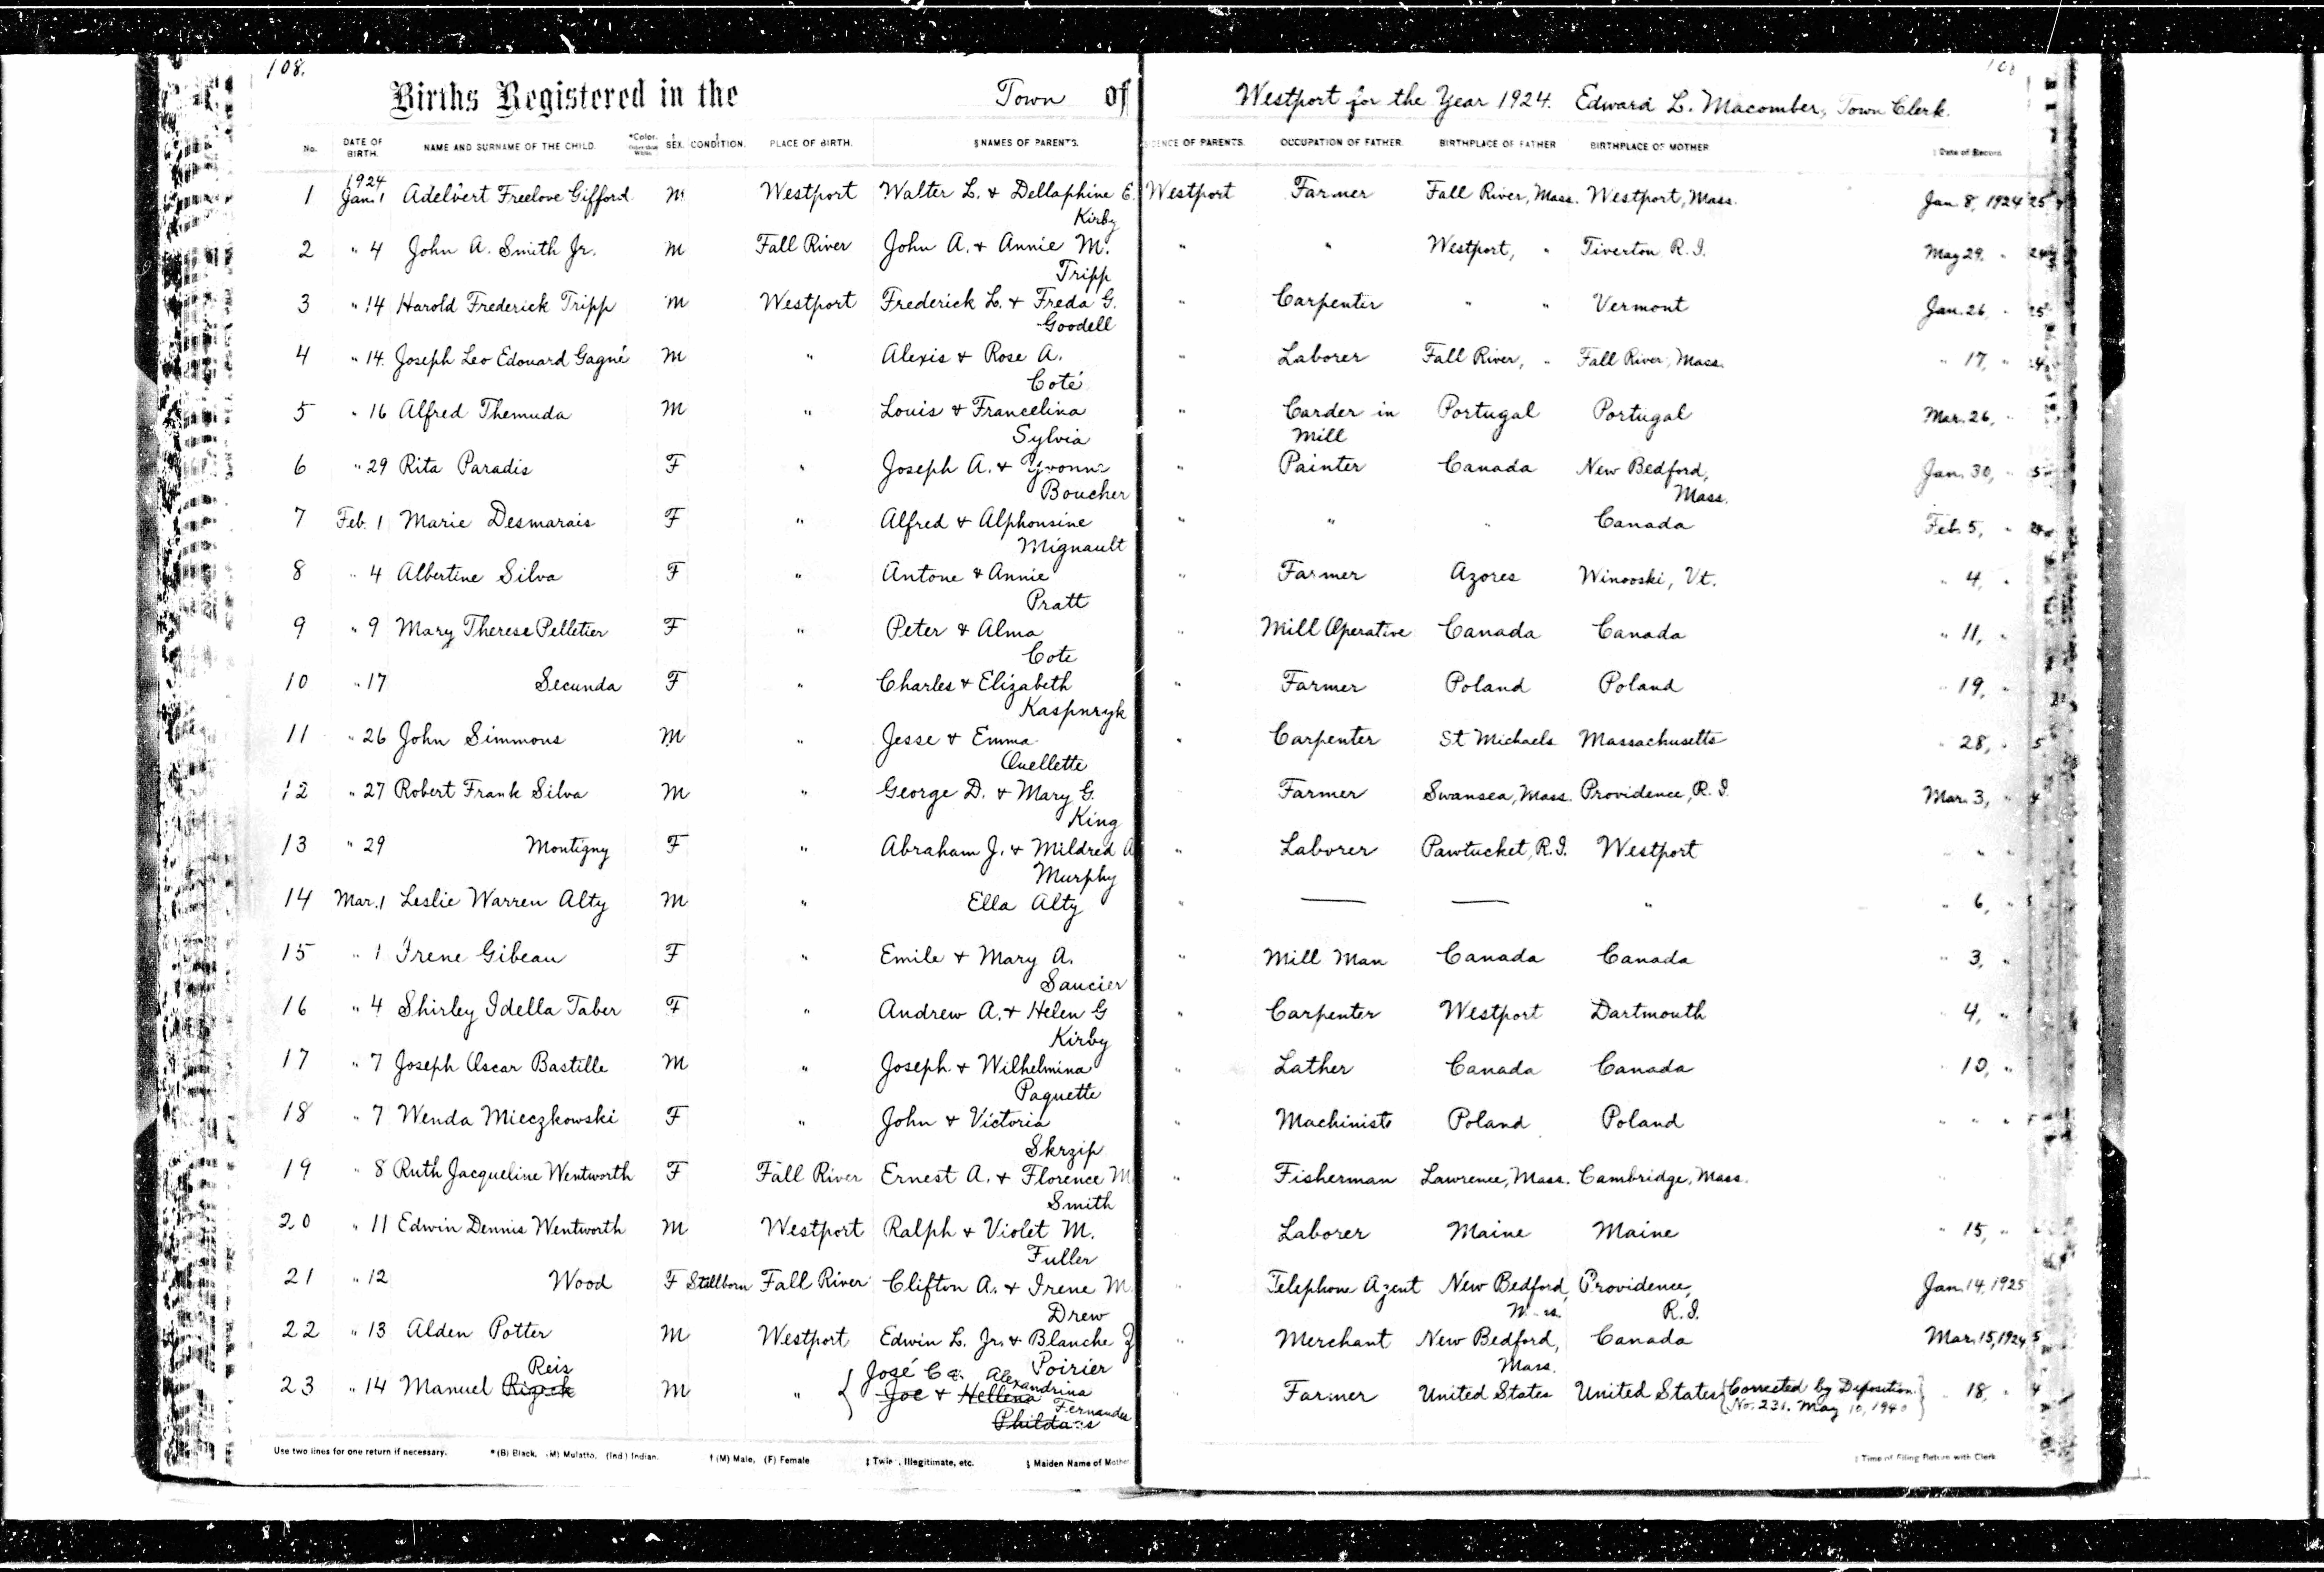 108.
108
Births Registered in the Town of Westport for the Year 1924. Edward L. Macomber, Town Clerk.
No. DATE OF BIRTH. NAME AND SURNAME OF THE CHILD. *Color. Other than White. † SEX. ‡ CONDITION. PLACE OF BIRTH. § NAMES OF PARENTS. ENCE OF PARENTS. OCCUPATION OF FATHER. BIRTHPLACE OF FATHER BIRTHPLACE OF MOTHER Date of Record
1924
1 Jan. 1 Adelbert Freelove Gifford M Westport Walter L. & Dellaphine E. Westport Farmer Fall River, Mass. Westport, Mass. Jan 8, 1924 25
Kirby
2 " 4 John A. Smith Jr. M Fall River John A. & Annie M. " " Westport, " Tiverton R.I. May 29. "
Tripp
3 " 14 Harold Frederick Tripp M Westport Frederick L. & Freda G. " Carpenter " " Vermont Jan. 26 " 25
Goodell
4 " 14. Joseph Leo Edouard Gagné M " Alexis & Rose A. " Laborer Fall River, " Fall River, Mass. " 17, "
Coté
5 " 16 Alfred Themuda M " Louis & Francelina " Carder in Portugal Portugal Mar. 26, "
Sylvia Mill
6 " 29 Rita Paradis F " Joseph A. & Yvonne " Painter Canada New Bedford, Jan. 30, " 5
Boucher Mass.
7 Feb. 1 Marie Desmarais F " Alfred & Alphonsine " " " Canada Feb. 5, "
Mignault
8 " 4 Albertine Silva F " Antone & Annie " Farmer Azores Winooski, Vt. " 4, "
Pratt
9 " 9 Mary Therese Pelletier F " Peter & Alma " Mill Operative Canada Canada " 11, "
Cote
10 " 17 Secunda F " Charles & Elizabeth " Farmer Poland Poland " 19, "
Kaspnryk
11 " 26 John Simmons M " Jesse & Emma " Carpenter St Michaels Massachusetts " 28, " 5
Ouellette
12 " 27 Robert Frank Silva M " George D. & Mary G. Farmer Swansea, Mass. Providence, R.I. Mar. 3, " 4
King
13 " 29 Montigny F " Abraham J. & Mildred A " Laborer Pawtucket, R.I. Westport " " "
Murphy
14 Mar. 1 Leslie Warren Alty M " Ella Alty " — — " " 6, "
15 " 1 Irene Gibeau F " Emile & Mary A. " Mill Man Canada Canada " 3, "
Saucier
16 " 4 Shirley Idella Taber F " Andrew A. & Helen G " Carpenter Westport Dartmouth " 4, "
Kirby
17 " 7 Joseph Oscar Bastille M " Joseph & Wilhelmina " Lather Canada Canada " 10, "
Paquette
18 " 7 Wenda Mieczkowski F " John & Victoria " Machinist Poland Poland " " "
Skrzip
19 " 8 Ruth Jacqueline Wentworth F Fall River Ernest A. & Florence M " Fisherman Lawrence, Mass. Cambridge, Mass.
Smith
20 " 11 Edwin Dennis Wentworth M Westport Ralph & Violet M. Laborer Maine Maine " 15, "
Fuller
21 " 12 Wood F Stillborn Fall River Clifton A. & Irene M " Telephone Agent New Bedford, Providence, Jan. 14, 1925
Drew R.I.
22 " 13 Alden Potter M Westport Edwin L. Jr. & Blanche Z " Merchant New Bedford, Canada Mar. 15, 1924 5
Reis José Alexandrina Poirier Mass.
23 " 14 Manuel M " Joe & Hellena " Farmer United States United States {Corrected by Deposition} " 18, " 4
Fernandes No. 231. May 10, 1940
Use two lines for one return if necessary. *(B) Black, (M) Mulatto, (Ind) Indian. † (M) Male, (F) Female ‡ Twin, Illegitimate, etc. § Maiden Name of Mother. Time of Filing Return with Clerk